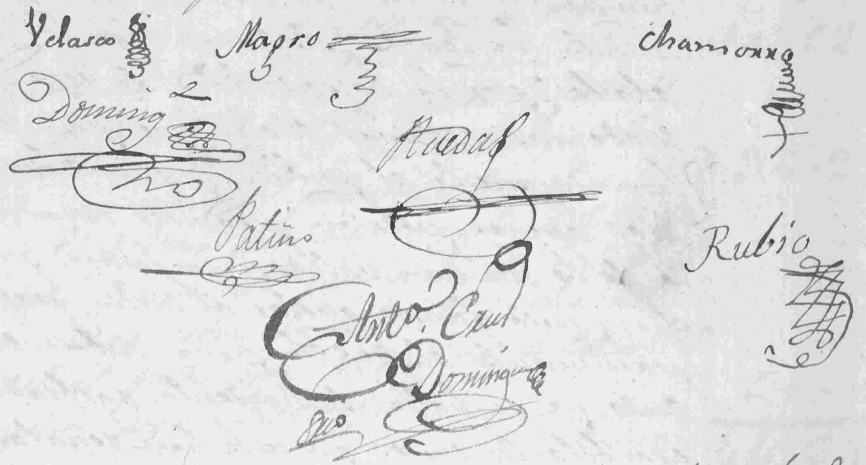 Velasco Magro Chamorro
Doming^z
Huedas
Patiño
Rubio
Ant.º Cruz
Doming
Srio